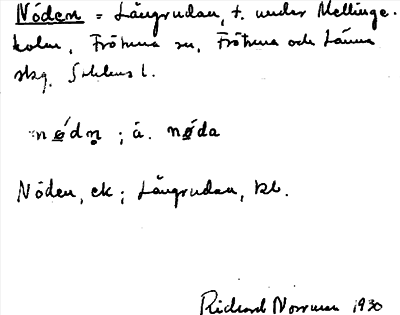 Nöden = Långrudan, t. under Mellinge-
holm, Frötuna sn, Frötuna och Länna
skg. Sthlms l.
nǿdn̥; ä. nøda
Nöden, ek; Långrudan, kb.
Richard Norrman 1930